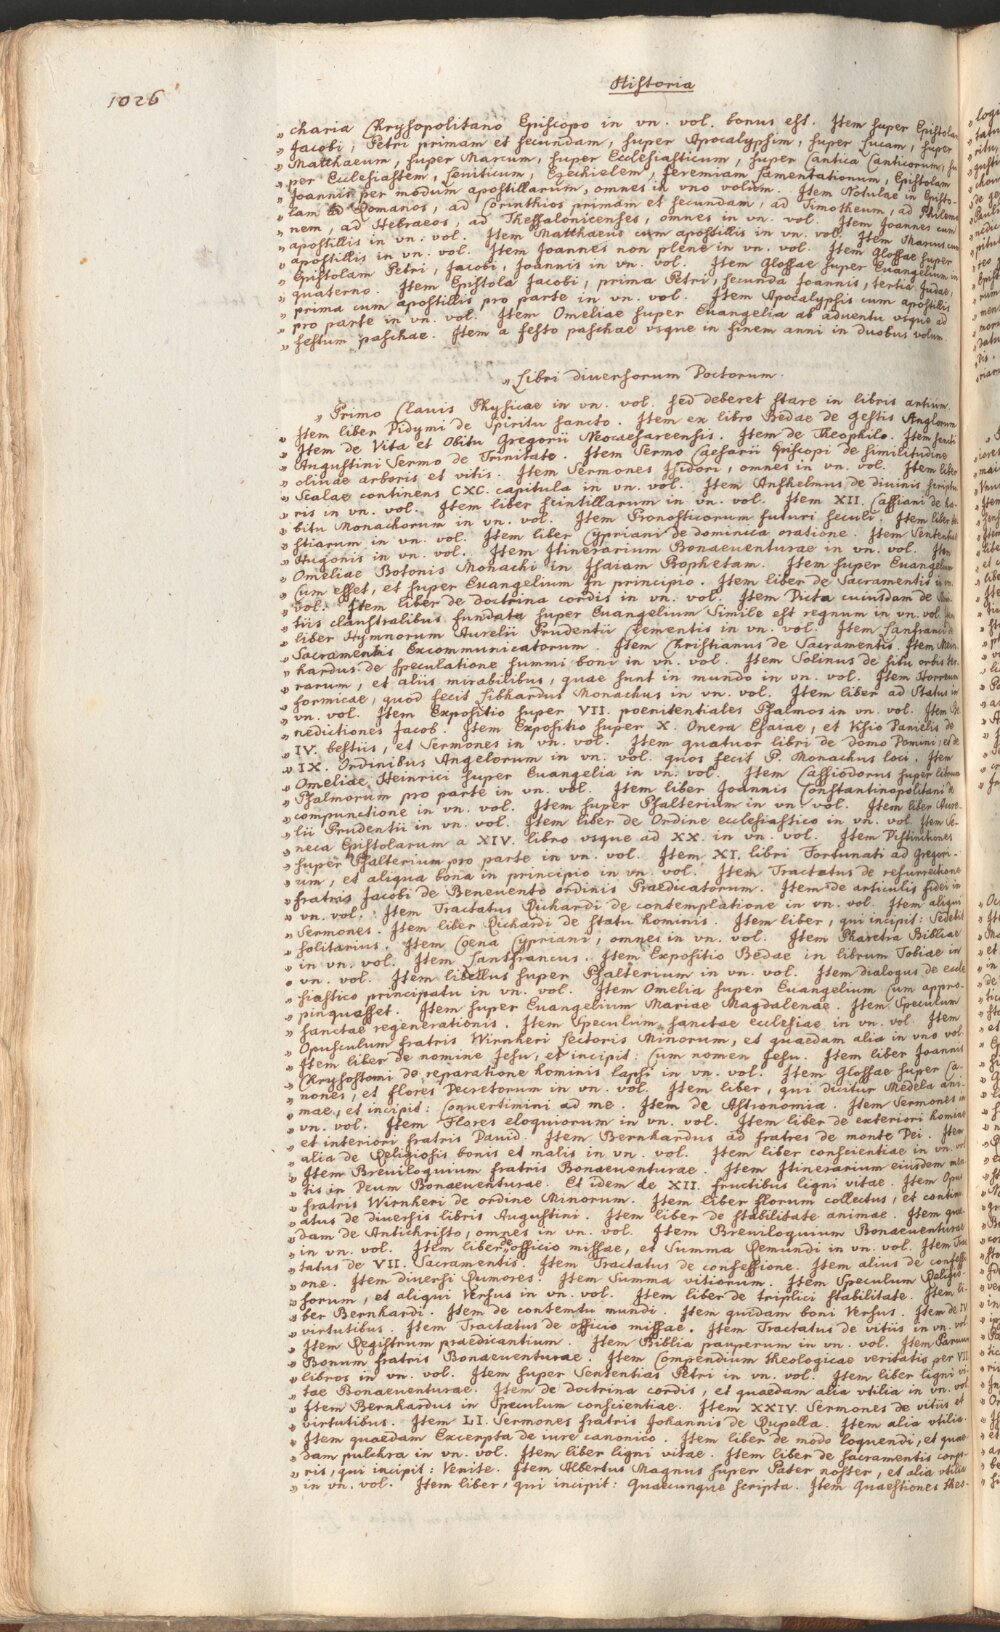 1026
Historia
„ charia Chrysopolitano Episcopo in vn. vol. bonus est. Item super Epistolas
„ Jacobi, Petri primam et secundam, super Apocalypsim, super Lucam, super
„ Matthaeum, super Marcum, super Ecclesiasticum, super Cantica Canticorum, su
„ per Ecclesiastem, Leniticum, Ezechielem, Jeremiam Lamentationum, Epistolam
„ Joannis per modum apostillarum, omnes in vno volum. Item Notulae in Episto-
„ lam ad Romanos, ad Corinthios primam et secundam, ad Timotheum, ad Philemo
„ nem, ad Hebraeos, ad Thessalonicenses, omnes in vn. vol. Item Joannes cum
„ apostillis in vn. vol. Item Matthaeus cum apostillis in vn. vol. Item Marcus cum
„ apostillis in vn. vol. Item Joannes non plene in vn. vol. Item Glossae super
„ Epistolam Petri, Jacobi, Joannis in vn. vol. Item Glossae super Euangelium in
„ quaterno. Item Epistola Jacobi, prima Petri, secunda Joannis, tertia Judae,
„ prima cum apostillis pro parte in vn. vol. Item Apocalypsis cum apostillis
„ pro parte in vn. vol. Item Omeliae super Euangelia ab aduentu vsque ad
„ festum paschae. Item a festo paschae vsque in finem anni in duobus volum.
„ Libri diuersorum Doctorum.
„ Primo Clauis Physicae in vn. vol. sed deberet stare in libris artium.
„ Item liber Didymi de Spiritu sancto. Item ex libro Bedae de gestis Anglorum
„ Item de Vita et Obitu Gregorii Neocaesareensis. Item de Theophilo. Item sancti
„ Augustini Sermo de Trinitate. Item Sermo Caesarii Episcopi de similitudine
„ oliuae arboris et vitis. Item Sermones Isidori, omnes in vn. vol. Item liber
„ Scalae continens CXC. capitula in vn. vol. Item Anshelmus de diuinis scriptu
„ ris in vn. vol. Item liber scintillarum in vn. vol. Item XII. Cassiani de ha-
„ bitu Monachorum in vn. vol. Item Pronosticorum futuri seculi. Item liber be-
„ stiarum in vn. vol. Item liber Cypriani de dominica oratione. Item Sententiae
„ Hugonis in vn. vol. Item Itinerarium Bonaeuenturae in vn. vol. Item
„ Omeliae Botonis Monachi in Isaiam Prophetam. Item super Euangelium
„ Cum esset, et super Euangelium In principio. Item liber de Sacramentis in vn.
„ vol. Item liber de doctrina cordis in vn. vol. Item Dicta cuiusdam de
„ tiis claustralibus fundata super Euangelium Simile est regnum in vn. vol. Item
„ liber Hymnorum Aurelii Prudentii Clementis in vn. vol. Item Lanfranci de
„ Sacramentis Excommunicatorum. Item Christianus de Sacramentis. Item Mein-
„ hardus de speculatione summi boni in vn. vol. Item Solinus de situ orbis ter-
„ rarum, et aliis mirabilibus, quae sunt in mundo in vn. vol. Item Horreum
„ formicae, quod fecit Libhardus Monachus in vn. vol. Item liber ad Status in
„ vn. vol. Item Expositio super VII. poenitentiales Psalmos in vn. vol. Item Be-
„ nedictiones Jacob. Item Expositio super X. Onera Esaiae, et Visio Danielis de
„ IV. bestiis, et Sermones in vn. vol. Item quatuor libri de domo Domini, et de
„ IX. Ordinibus Angelorum in vn. vol. quos fecit P. Monachus loci. Item
„ Omeliae Heinrici super Euangelia in vn. vol. Item Cassiodorus super librum
„ Psalmorum pro parte in vn. vol. Item liber Joannis Constantinopolitani de
„ compunctione in vn. vol. Item super Psalterium in vn. vol. Item liber Aure-
„ lii Prudentii in vn. vol. Item liber de Ordine ecclesiastico in vn. vol. Item Se-
„ neca Epistolarum a XIV. libro vsque ad XX. in vn. vol. Item Distinctiones
„ super Psalterium pro parte in vn. vol. Item XI. libri Fortunati ad Gregori-
„ um, et aliqua bona in principio in vn. vol. Item Tractatus de resurrectione
„ fratris Jacobi de Beneuento ordinis Praedicatorum. Item de articulis fidei in
„ vn. vol. Item Tractatus Richardi de contemplatione in vn. vol. Item aliqui
„ Sermones. Item liber Richardi de statu hominis. Item liber, qui incipit: Sedebit
„ solitarius. Item Coena Cypriani, omnes in vn. vol. Item Pharetra Bibliae
„ in vn. vol. Item Lantfrancus. Item Expositio Bedae in librum Tobiae in
„ vn. vol. Item libellus super Psalterium in vn. vol. Item dialogus de eccle
„ siastico principatu in vn. vol. Item Omelia super Euangelium Cum appro-
„ pinquasset. Item super Euangelium Mariae Magdalenae. Item Speculum
„ sanctae regenerationis. Item Speculum sanctae ecclesiae in vn. vol. Item
„ Opusculum fratris Wirnheri Lectoris Minorum, et quaedam alia in vno vol.
„ Item liber de nomine Jesu, et incipit: Cum nomen Jesu. Item liber Joannis
„ Chrysostomi de reparatione hominis lapsi in vn. vol. Item Glossae super Ca-
„ nones, et flores Decretorum in vn. vol. Item liber, qui dicitur Medela ani-
„ mae, et incipit: Conuertimini ad me. Item de Astronomia. Item Sermones in
„ vn. vol. Item Flores eloquiorum in vn. vol. Item liber de exteriori homine
„ et interiori fratris Dauid. Item Bernhardus ad fratres de monte Dei. Item
„ alia de Religiosis bonis et malis in vn. vol. Item liber conscientiae in vn. vol
„ Item Breuiloquium fratris Bonaeuenturae. Item Itinerarium eiusdem men
„ tis in Deum Bonaeuenturae. Et idem de XII. fructibus ligni vitae. Item Opus
„ fratris Wirnheri de ordine Minorum. Item liber florum collectus, et contin
„ atus de diuersis libris Augustini. Item liber de stabilitate animae. Item quae
„ dam de Antichristo, omnes in vn. vol. Item Breuiloquium Bonaeuenturae
„ in vn. vol. Item liber de officio missae, et Summa Remundi in vn. vol. Item Trac
„ tatus de VII. Sacramentis. Item Tractatus de confessione. Item alius de confessi
„ one. Item diuersi Rumores. Item Summa vitiorum. Item Speculum Religio-
„ sorum, et aliqui Versus in vn. vol. Item liber de triplici stabilitate. Item li-
„ ber Bernhardi. Item de contemtu mundi. Item quidam boni Versus. Item de IV
„ virtutibus. Item Tractatus de officio missae. Item Tractatus de vitiis in vn. vol
„ Item Registrum praedicantium. Item Biblia pauperum in vn. vol. Item Paruum
„ Bonum fratris Bonaeuenturae. Item Compendium theologicae veritatis per VII
„ libros in vn. vol. Item super Sententias Petri in vn. vol. Item liber ligni vi-
„ tae Bonaeuenturae. Item de doctrina cordis, et quaedam alia vtilia in vn. vol
„ Item Bernhardus in Speculum conscientiae. Item XXIV. Sermones de vitiis et
„ virtutibus. Item LI. Sermones fratris Johannis de Rupella. Item alia vtilia.
„ Item quaedam Excerpta de iure canonico. Item liber de modo loquendi, et quae-
„ dam pulchra in vn. vol. Item liber ligni vitae. Item liber de sacramentis corpo
„ ris, qui incipit: Venite. Item Albertus Magnus super Pater noster, et alia vtilia
„ in vn. vol. Item liber, qui incipit: Quaecunque scripta. Item Quaestiones theo-